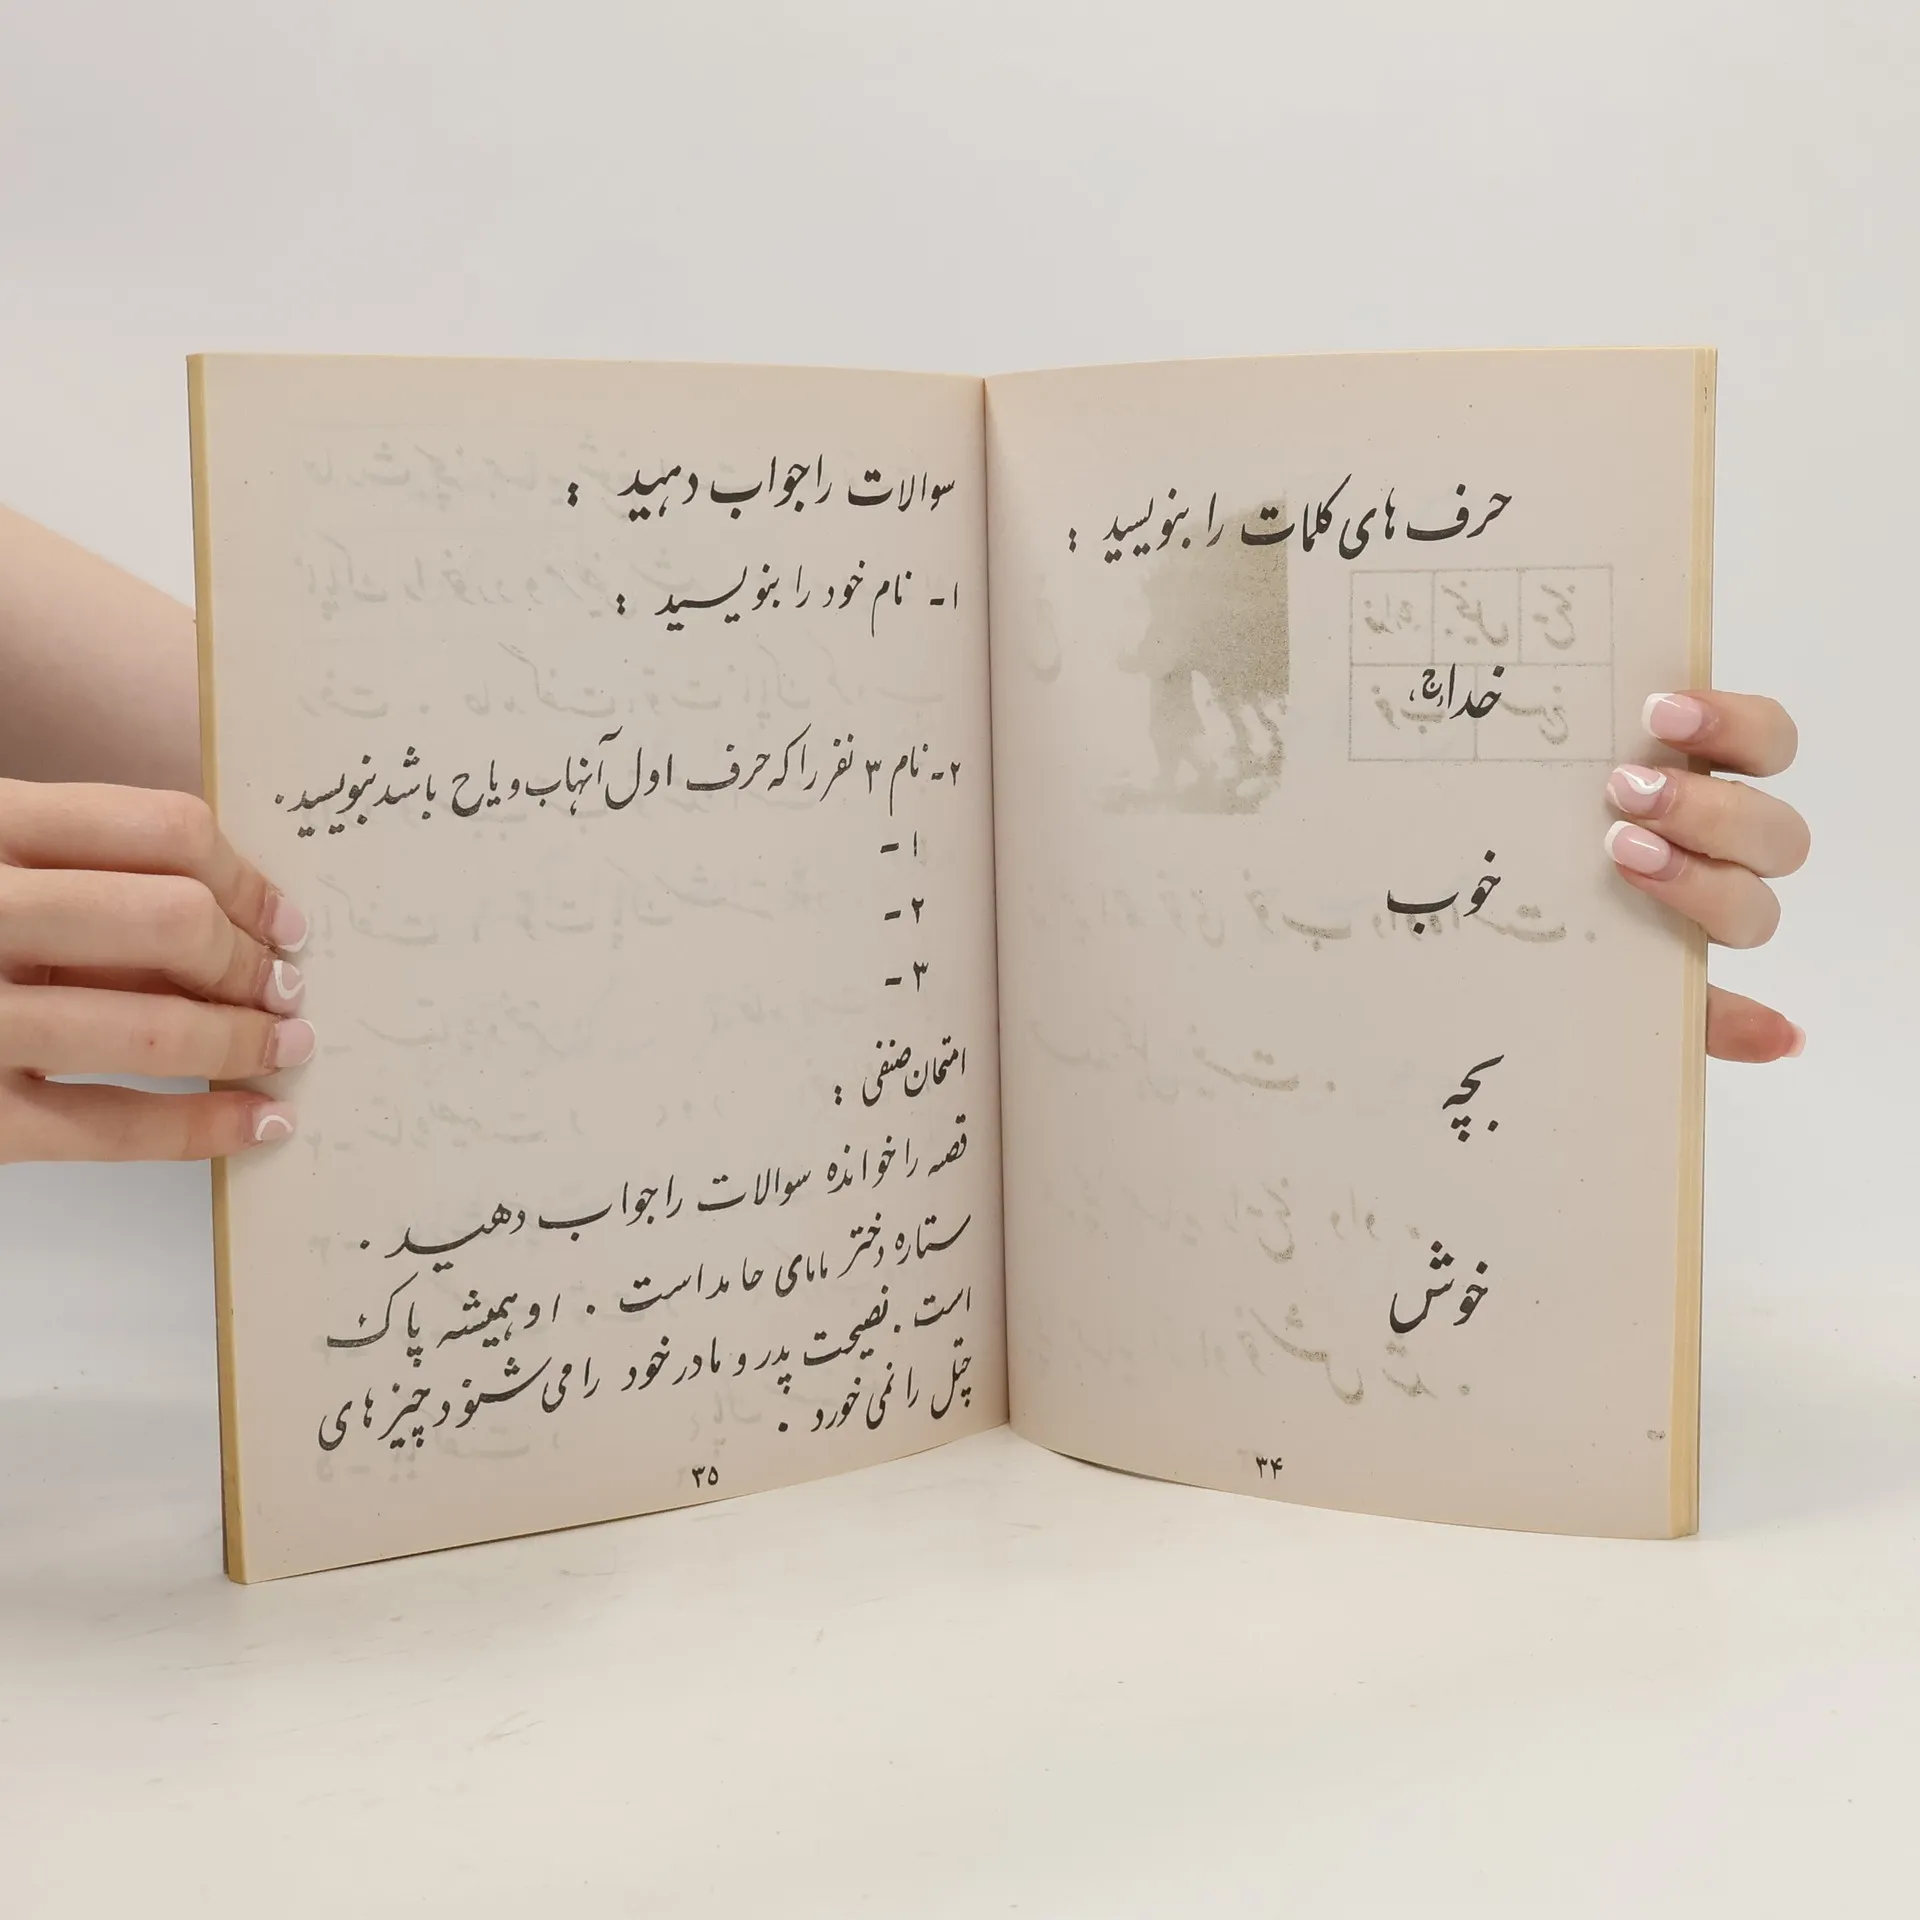 حرف های کلمات را بنویسید :
خداج
خوب
بچه
خوش
۳۴
سوالات را جواب دهید :
۱- نام خود را بنویسید :
۲- نام ۳ نفر را که حرف اول آنهاب و یاح باشد بنویسید.
۱-
۲-
۳-
امتحان صنفی :
قصه را خوانده سوالات را جواب دهید .
ستاره دختر مامای حامد است . او همیشه پاک
است . نصیحت پدر و مادر خود را می شنود چیز های
چتل را نمی خورد .
۳۵